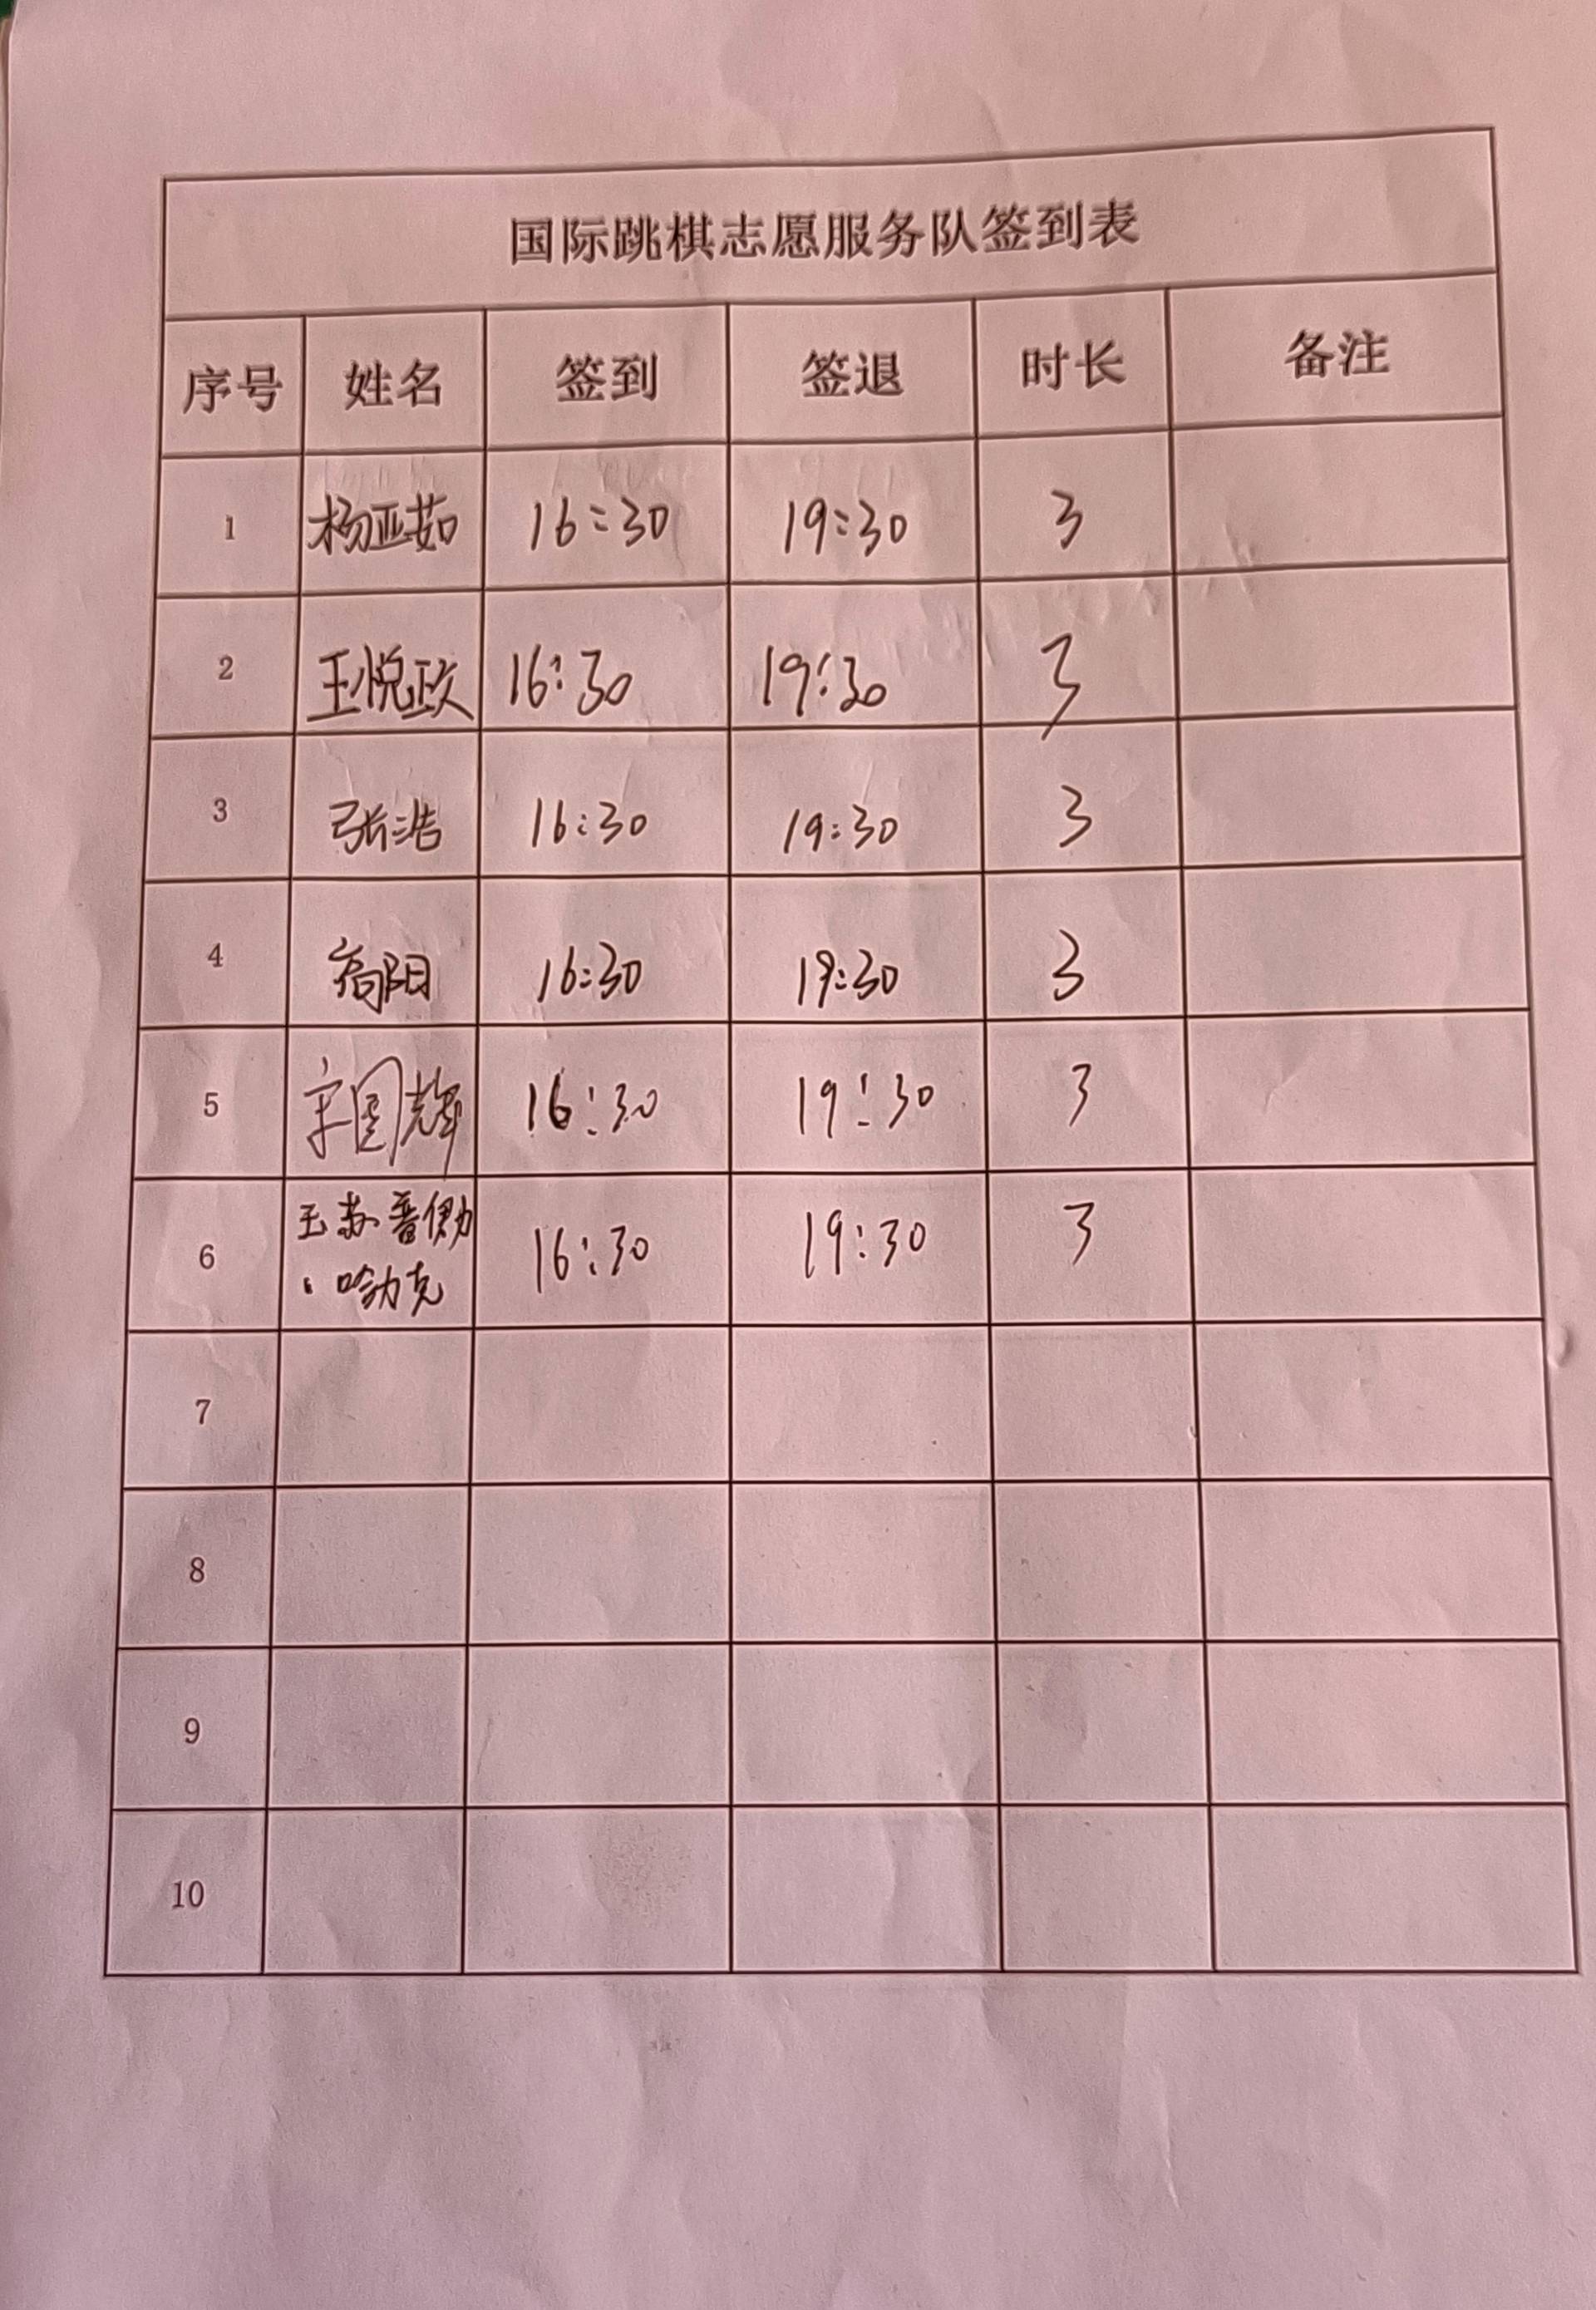 国际跳棋志愿服务队签到表
序号 姓名 签到 签退 时长 备注
1 杨亚茹 16:30 19:30 3
2 王悦政 16:30 19:30 3
3 张浩 16:30 19:30 3
4 阳 16:30 19:30 3
5 宋国辉 16:30 19:30 3
6 玉苏普 16:30 19:30 3
克
7
8
9
10